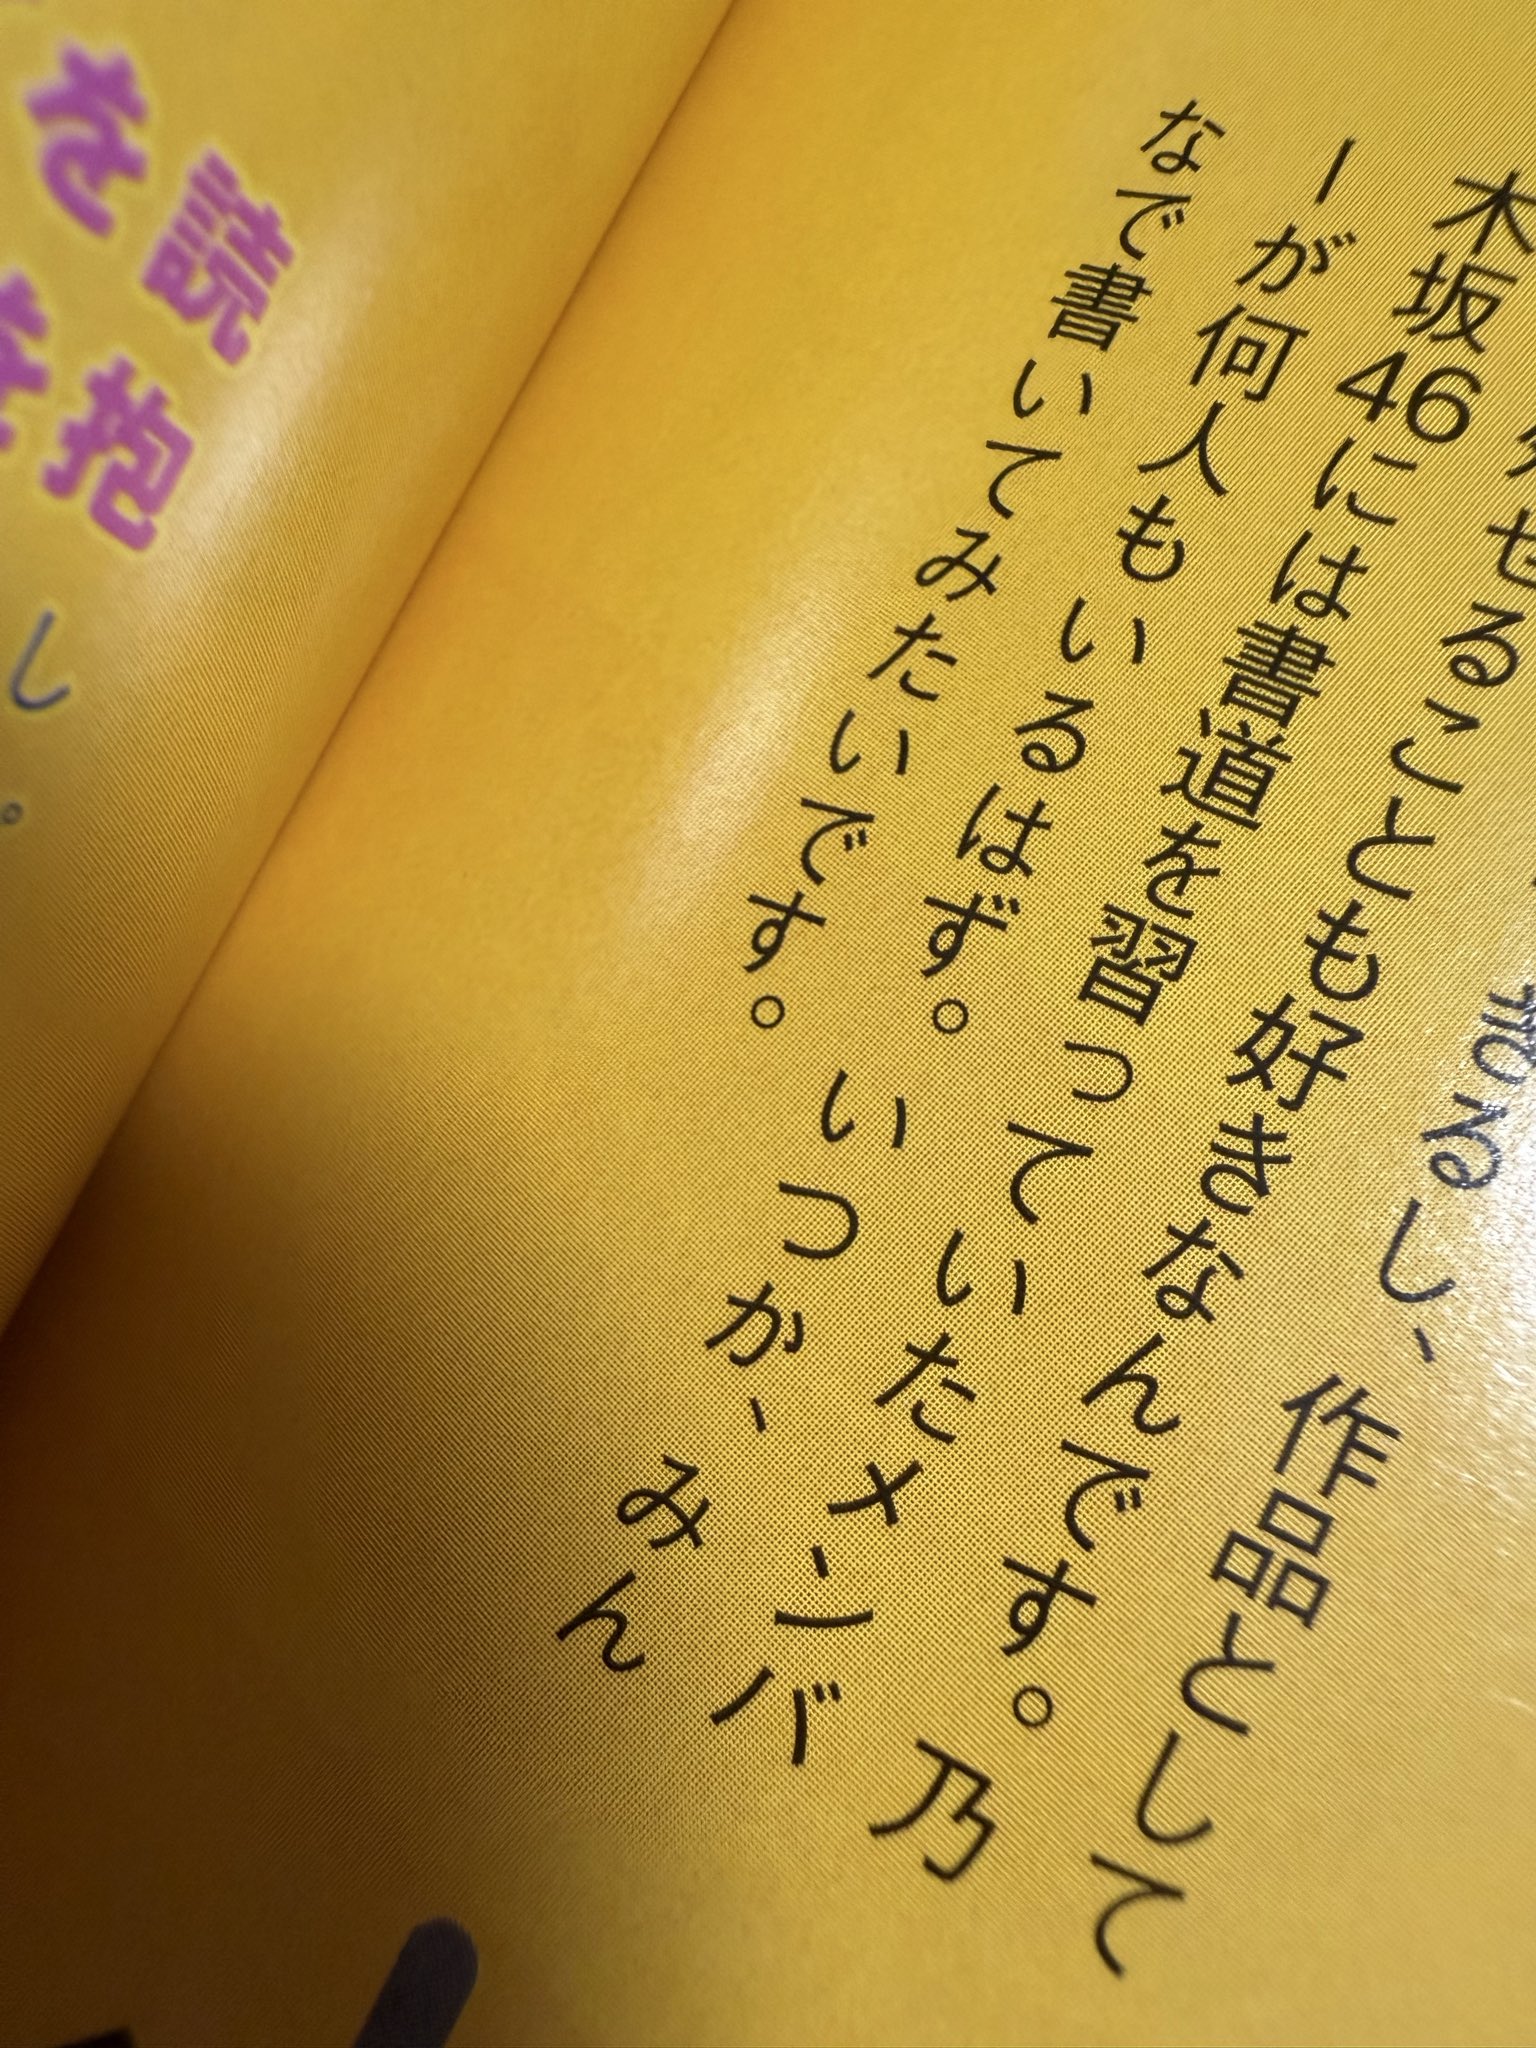 るし、作品として
せることも好きなんです。乃
木坂46には書道を習っていたメンバ
ーが何人もいるはず。いつか、みん
なで書いてみたいです。
読抱
を
し。